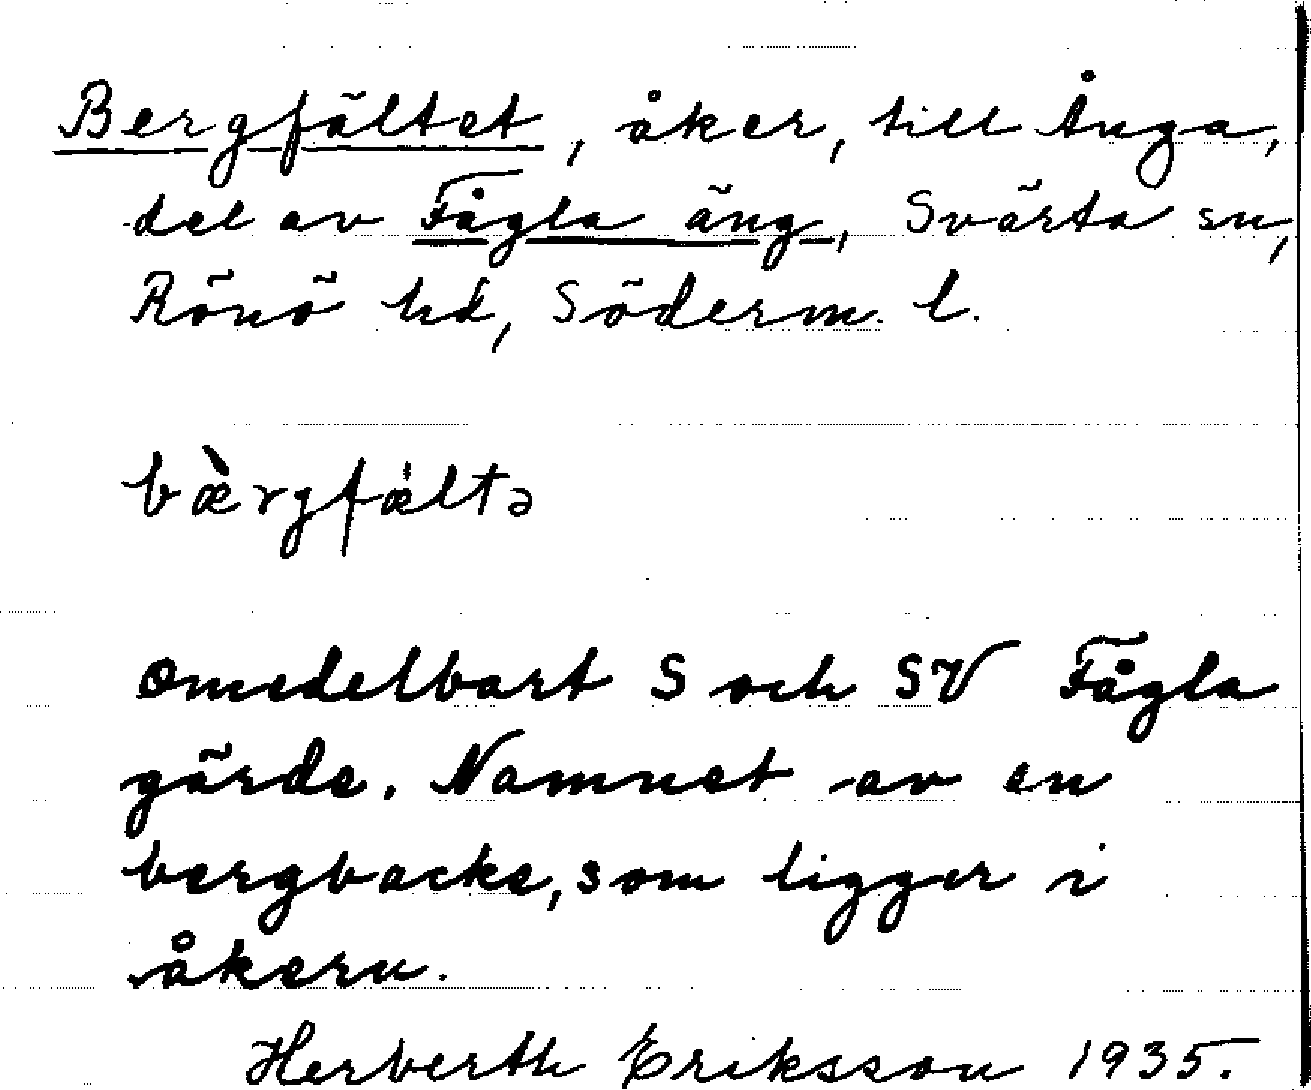 Bergfältet, åker, till Ånga,
del av Fågla äng, Svärta sn,
Rönö hd, Söderm. l.
bærgfæltə
Omedelbart S och SV Fågla
gärde. Namnet av en
bergbacke, som ligger i
åkern.
Herberth Eriksson 1935.